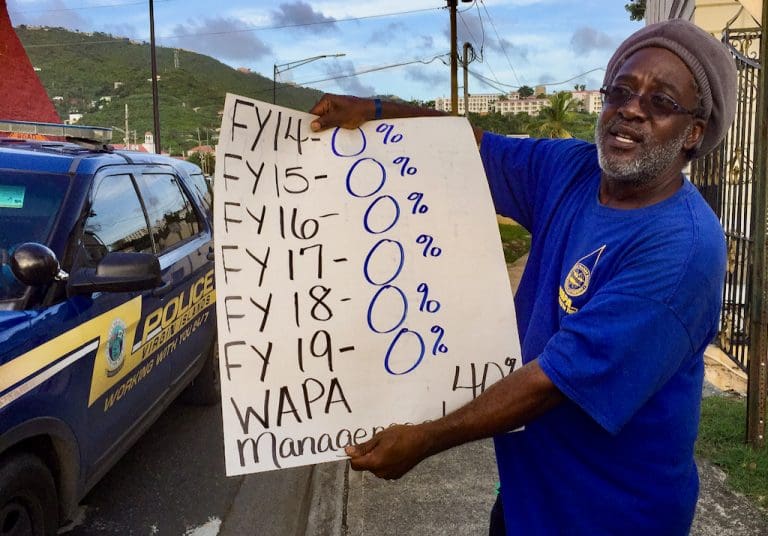 FY14- 0%
FY 15- 0%
FY 16- 0%
FY 17- 0%
FY 18- 0%
FY 19- 0%
WAPA 40%
POLICE
VIRGIN ISLANDS
WORKING WITH YOU 24/7